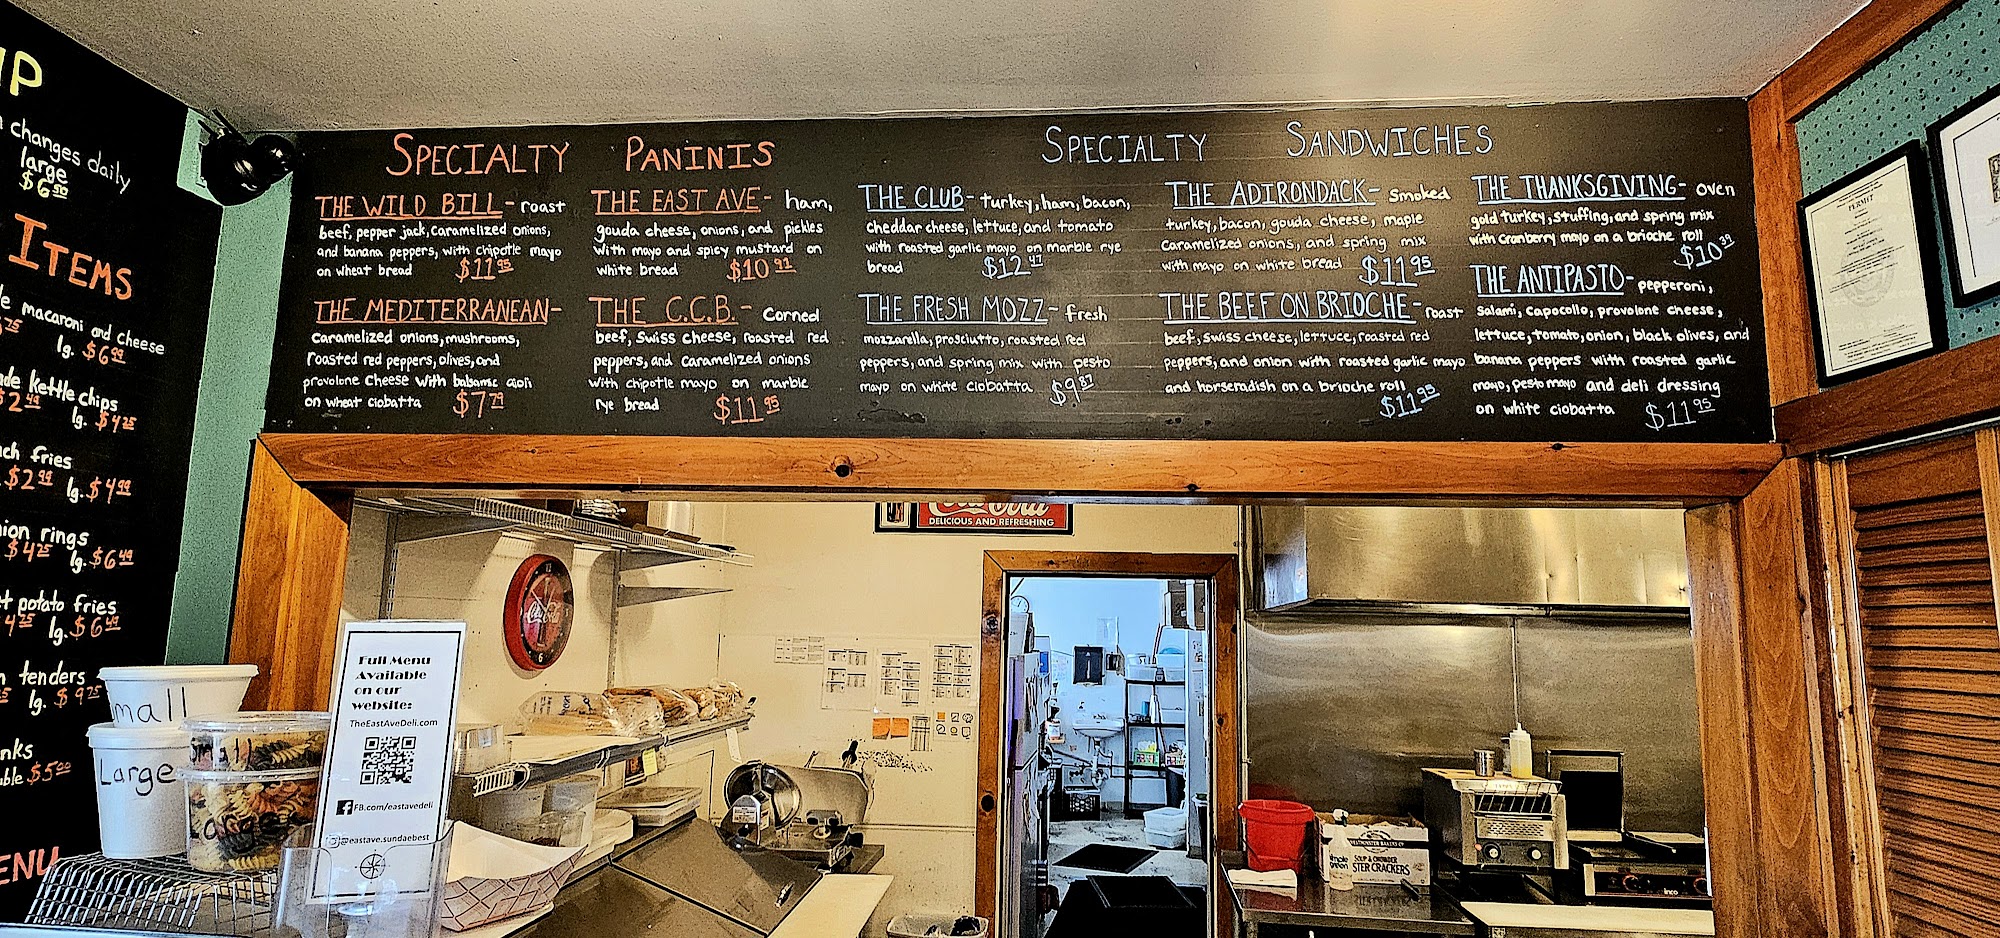 changes daily
large
$6.50
ITEMS
macaroni and cheese
lg. $6.99
kettle chips
$2.49 lg. $4.25
fries
$2.99 lg. $4.99
rings
$4.25 lg. $6.49
potato fries
lg. $6.49
tenders
lg. $9.75
$5.00
SPECIALTY PANINIS
THE WILD BILL- roast
beef, pepper jack, caramelized onions,
and banana peppers, with chipotle mayo
on wheat bread $11.95
THE MEDITERRANEAN-
caramelized onions, mushrooms,
roasted red peppers, olives, and
provolone cheese with balsamic aioli
on wheat ciobatta $7.79
THE EAST AVE- ham,
gouda cheese, onions, and pickles
with mayo and spicy mustard on
white bread $10.91
THE C.C.B.- corned
beef, swiss cheese, roasted red
peppers, and caramelized onions
with chipotle mayo on marble
rye bread $11.95
SPECIALTY SANDWICHES
THE CLUB- turkey, ham, bacon,
cheddar cheese, lettuce, and tomato
with roasted garlic mayo on marble rye
bread $12.47
THE FRESH MOZZ- fresh
mozzarella, prosciutto, roasted red
peppers, and spring mix with pesto
mayo on white ciobatta $9.87
THE ADIRONDACK- smoked
turkey, bacon, gouda cheese, maple
caramelized onions, and spring mix
with mayo on white bread $11.95
THE BEEF ON BRIOCHE- roast
beef, swiss cheese, lettuce, roasted red
peppers, and onion with roasted garlic mayo
and horseradish on a brioche roll
$11.95
THE THANKSGIVING- oven
gold turkey, stuffing, and spring mix
with cranberry mayo on a brioche roll
$10.39
THE ANTIPASTO- pepperoni,
salami, capocollo, provolone cheese,
lettuce, tomato, onion, black olives, and
banana peppers with roasted garlic
mayo, pesto mayo and deli dressing
on white ciobatta $11.95
PERMIT
Coca-Cola
DELICIOUS AND REFRESHING
Coca-Cola
Full Menu
Available
on our
website:
TheEastAveDeli.com
FB.com/eastavedeli
@eastave.sundaebest
small
Large
Small
Large
SOUP & CHOWDER